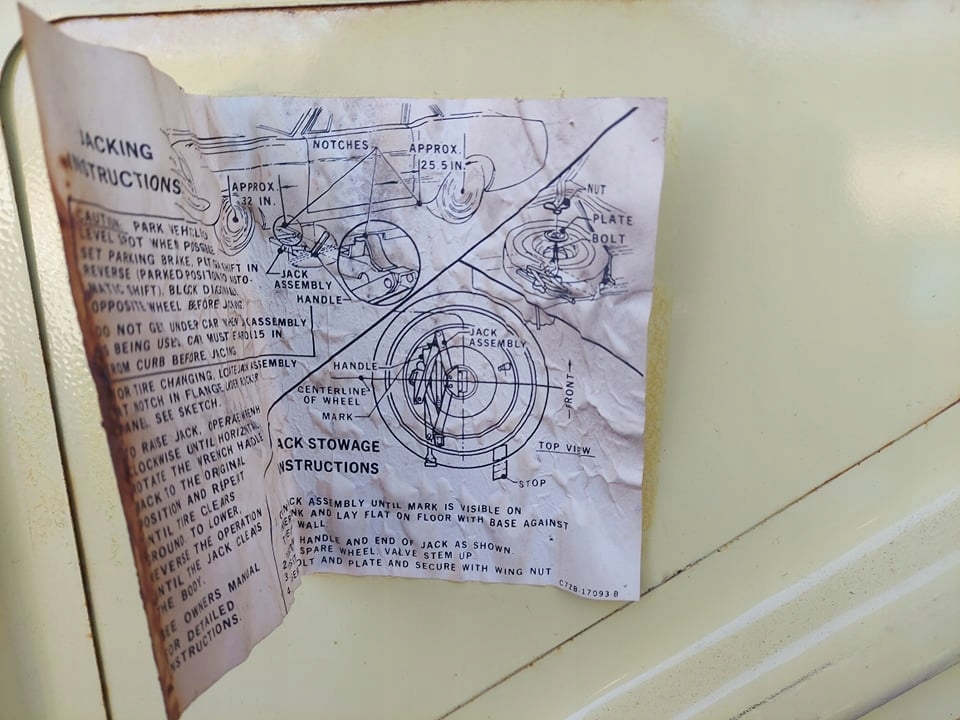 JACKING
INSTRUCTIONS
CAUTION. PARK VEHICLE
LEVEL SPOT WHEN POSSIBLE
SET PARKING BRAKE, PUT GEARSHIFT IN
REVERSE (PARKED POSITION AUTO-
MATIC SHIFT), BLOCK DIAGONAL
OPPOSITE WHEEL BEFORE JACKING.
DO NOT GET UNDER CAR WHEN JACK ASSEMBLY
IS BEING USED. CAR MUST 15 IN.
FROM CURB BEFORE JACKING
FOR TIRE CHANGING, LOCATE JACK ASSEMBLY
AT NOTCH IN FLANGE UNDER ROCKER
PANEL. SEE SKETCH.
TO RAISE JACK, OPERATE WRENCH
CLOCKWISE UNTIL HORIZONTAL
ROTATE THE WRENCH HANDLE
BACK TO THE ORIGINAL
POSITION AND REPEAT
UNTIL TIRE CLEARS
GROUND. TO LOWER,
REVERSE THE OPERATION
UNTIL THE JACK CLEARS
THE BODY.
SEE OWNERS MANUAL
FOR DETAILED
INSTRUCTIONS.
NOTCHES
APPROX.
25.5 IN.
APPROX.
32 IN.
JACK
ASSEMBLY
HANDLE
NUT
PLATE
BOLT
JACK
ASSEMBLY
HANDLE
CENTERLINE
OF WHEEL
MARK
FRONT
TOP VIEW
STOP
ACK STOWAGE
NSTRUCTIONS
JACK ASSEMBLY UNTIL MARK IS VISIBLE ON
NK AND LAY FLAT ON FLOOR WITH BASE AGAINST
WALL.
2. HANDLE AND END OF JACK AS SHOWN.
3. SPARE WHEEL, VALVE STEM UP
4. BOLT AND PLATE AND SECURE WITH WING NUT
C7ZB-17093-B